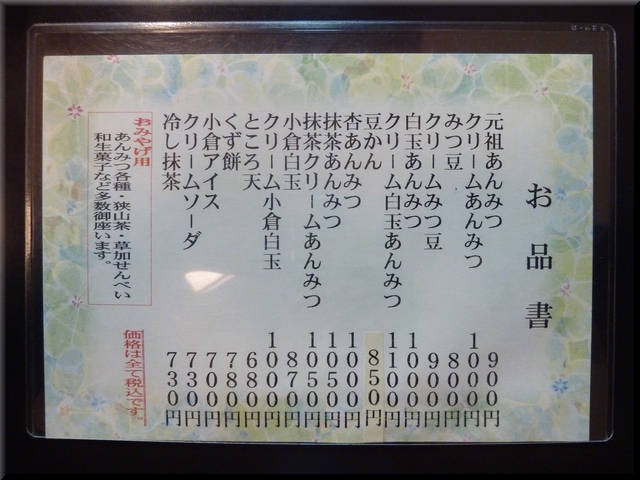 お品書
元祖あんみつ 900円
クリームあんみつ 1000円
みつ豆 800円
クリームみつ豆 900円
白玉あんみつ 1000円
クリーム白玉あんみつ 1100円
豆かん 850円
杏あんみつ 1000円
抹茶あんみつ 1050円
抹茶クリームあんみつ 1050円
小倉白玉 870円
クリーム小倉白玉 1000円
ところ天 680円
くず餅 780円
小倉アイス 700円
クリームソーダ 730円
冷し抹茶 730円
おみやげ用
あんみつ各種・狭山茶・草加せんべい
和生菓子など多数御座います。
価格は全て税込です。